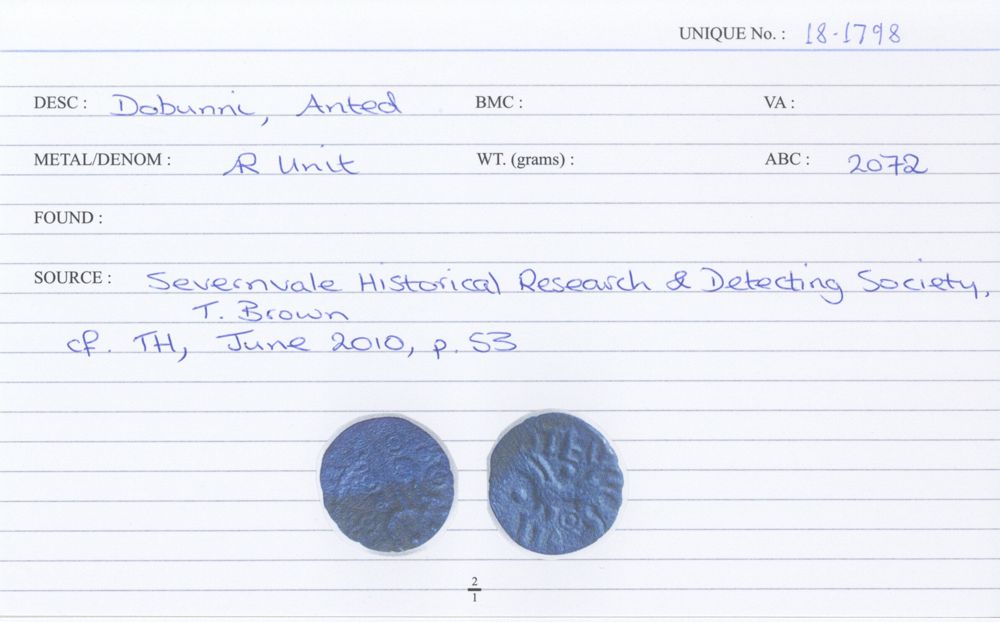 UNIQUE No. : 18-1798
DESC : Dobunni, Anted BMC : VA :
METAL/DENOM : AR Unit WT. (grams) : ABC : 2072
FOUND :
SOURCE : Severnvale Historical Research & Detecting Society,
T. Brown
cf. TH, June 2010, p. 53
2
1